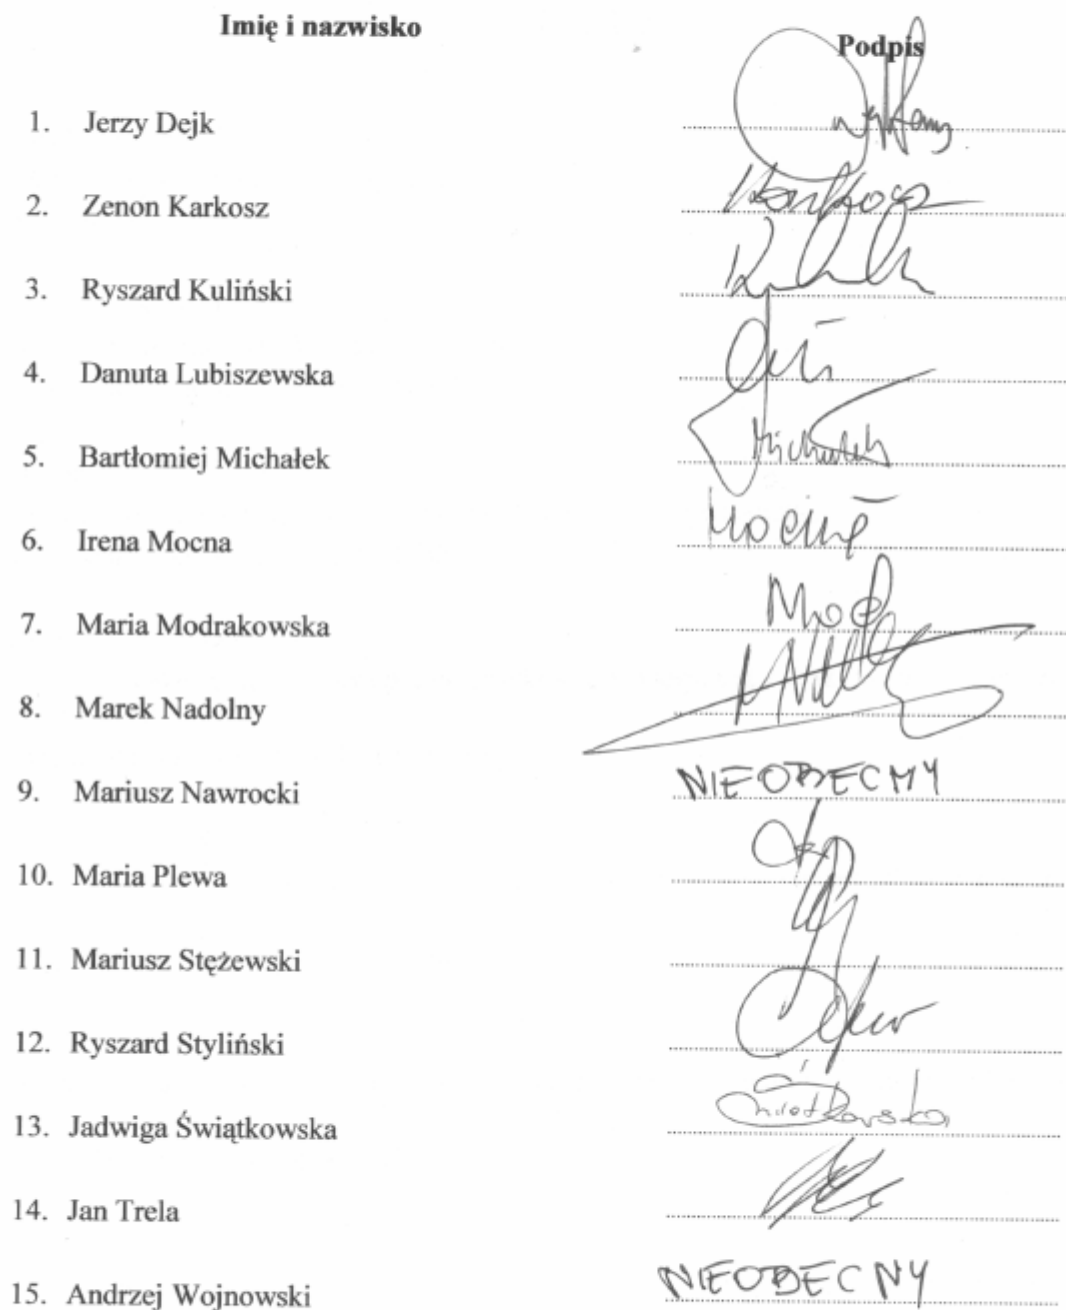 Imię i nazwisko Podpis
1. Jerzy Dejk
2. Zenon Karkosz Karkosz
3. Ryszard Kuliński
4. Danuta Lubiszewska
5. Bartłomiej Michałek Michałek
6. Irena Mocna
7. Maria Modrakowska
8. Marek Nadolny
9. Mariusz Nawrocki NIEOBECNY
10. Maria Plewa
11. Mariusz Stężewski
12. Ryszard Styliński
13. Jadwiga Świątkowska Świątkowska
14. Jan Trela
15. Andrzej Wojnowski NIEOBECNY